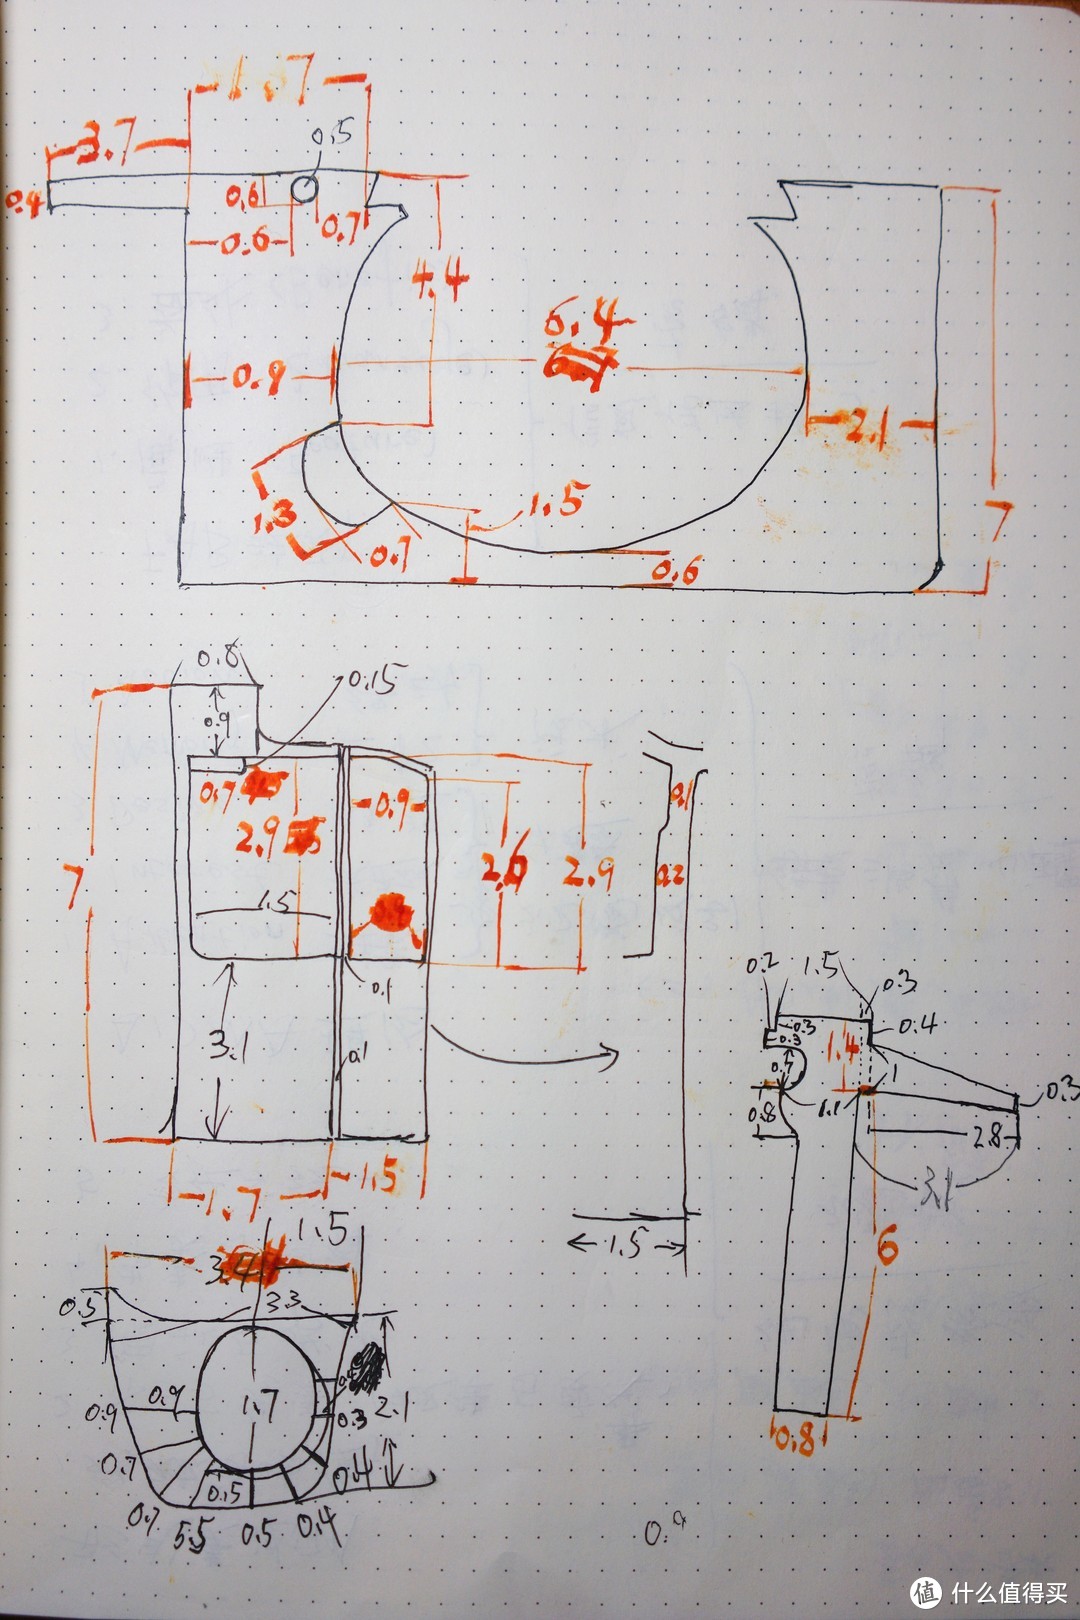 1.7
3.7
0.5
0.4
0.6
0.6
0.7
4.4
6.4
0.9
2.1
1.5
1.3
0.7
0.6
7
0.8
0.15
0.9
0.7
2.9
0.9
7
2.6
2.9
1.5
0.1
0.2
3.1
0.1
0.1
1.7
1.5
1.5
0.2
1.5
0.3
0.3
0.4
0.3
1.4
0.7
1
0.3
0.8
1.1
2.8
3.1
6
0.8
1.5
3.4
0.5
3.3
0.9
0.9
1.7
0.3
2.1
0.7
0.4
0.15
0.7
5.5
0.5
0.4
值 什么值得买